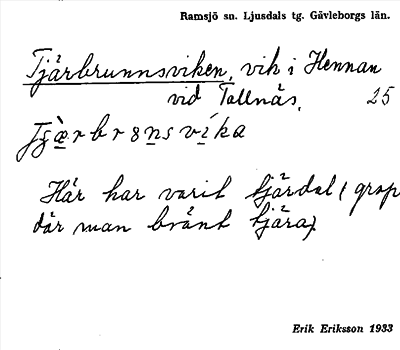 Ramsjö sn. Ljusdals tg. Gävleborgs län.
Tjärbrunnsviken, vik i Hennan
vid Tallnäs. 25
Här har varit tjärdal (grop
där man bränt tjära)
Erik Eriksson 1933